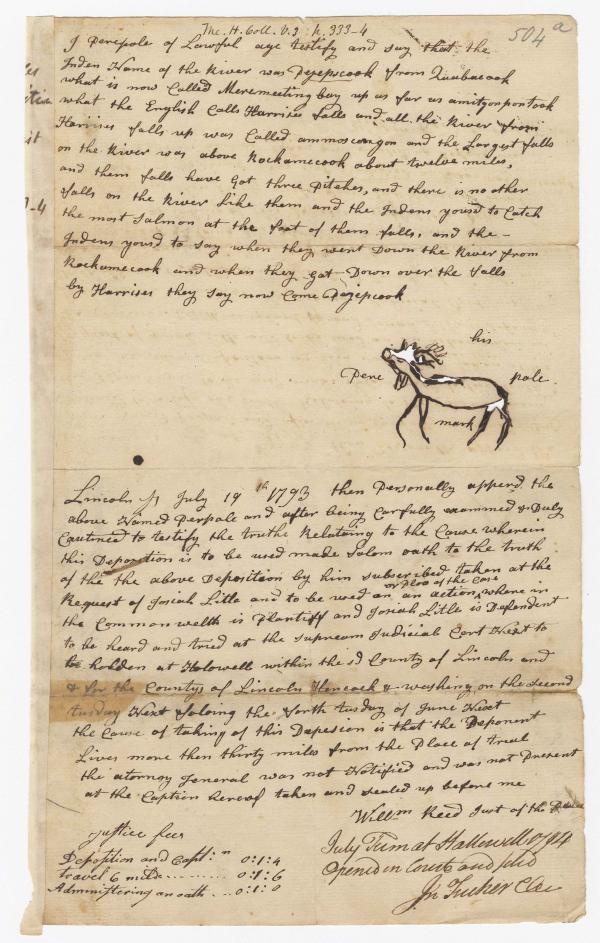 The. H. Coll. V.3: p. 333-4
504 a
I Perepole of Lawful age testify and say that the
Inden Name of the River was Pejepscook from Quabacook
what is now Called Meremeeting bay up as far as amitgonpontook
what the English Calls Harrises falls and all the River from
Harrises falls up was Called ammoscongon and the Largest falls
on the River was above Rockamecook about twelve miles,
and them falls have Got three Pitches, and there is no other
falls on the River Like them and the Indens yousd to Catch
the most Salmon at the foot of them falls, and the
Indens yousd to say when they went Down the River from
Rockamecook and when they got Down over the falls
by Harrises they say now Come Pejepscook
his
Pere pole
mark
Lincoln July 19th 1793 then Personally apperd the
above Named Perpole and after being Carfully examined & Duly
Cautined to testify the truthe Relateing to the Cause wherein
this Deposition is to be used made Solom oath to the truth
of the the above Deposition by him subscribed taken at the
or Plea of the Case
Request of Josiah Litle and to be used on an action where in
the Common welth is Plantiff and Josiah Litle is Defendent
to be heard and tried at the supream Judicial Cort Next to
be holden at Holowell within the sd County of Lincoln and
& for the Countys of Lincoln Hencock & washing on the second
tusday Next foloing the forth tusday of June Next
the Cause of taking of this Depesion is that the Deponent
Lives more then thirty miles from the Place of treal
the atorney General was not Notified and was not Present
at the Caption hereof taken and sealed up before me
Willm Reed Just of the Peace
Justice fees
Deposition and Capt:n 0:1:4
travel 6 mile 0:1:6
Administering an oath 0:1:0
July Term at Hallowell 1794
Opened in Court and filed
Jn Tucker Cler
it
-4